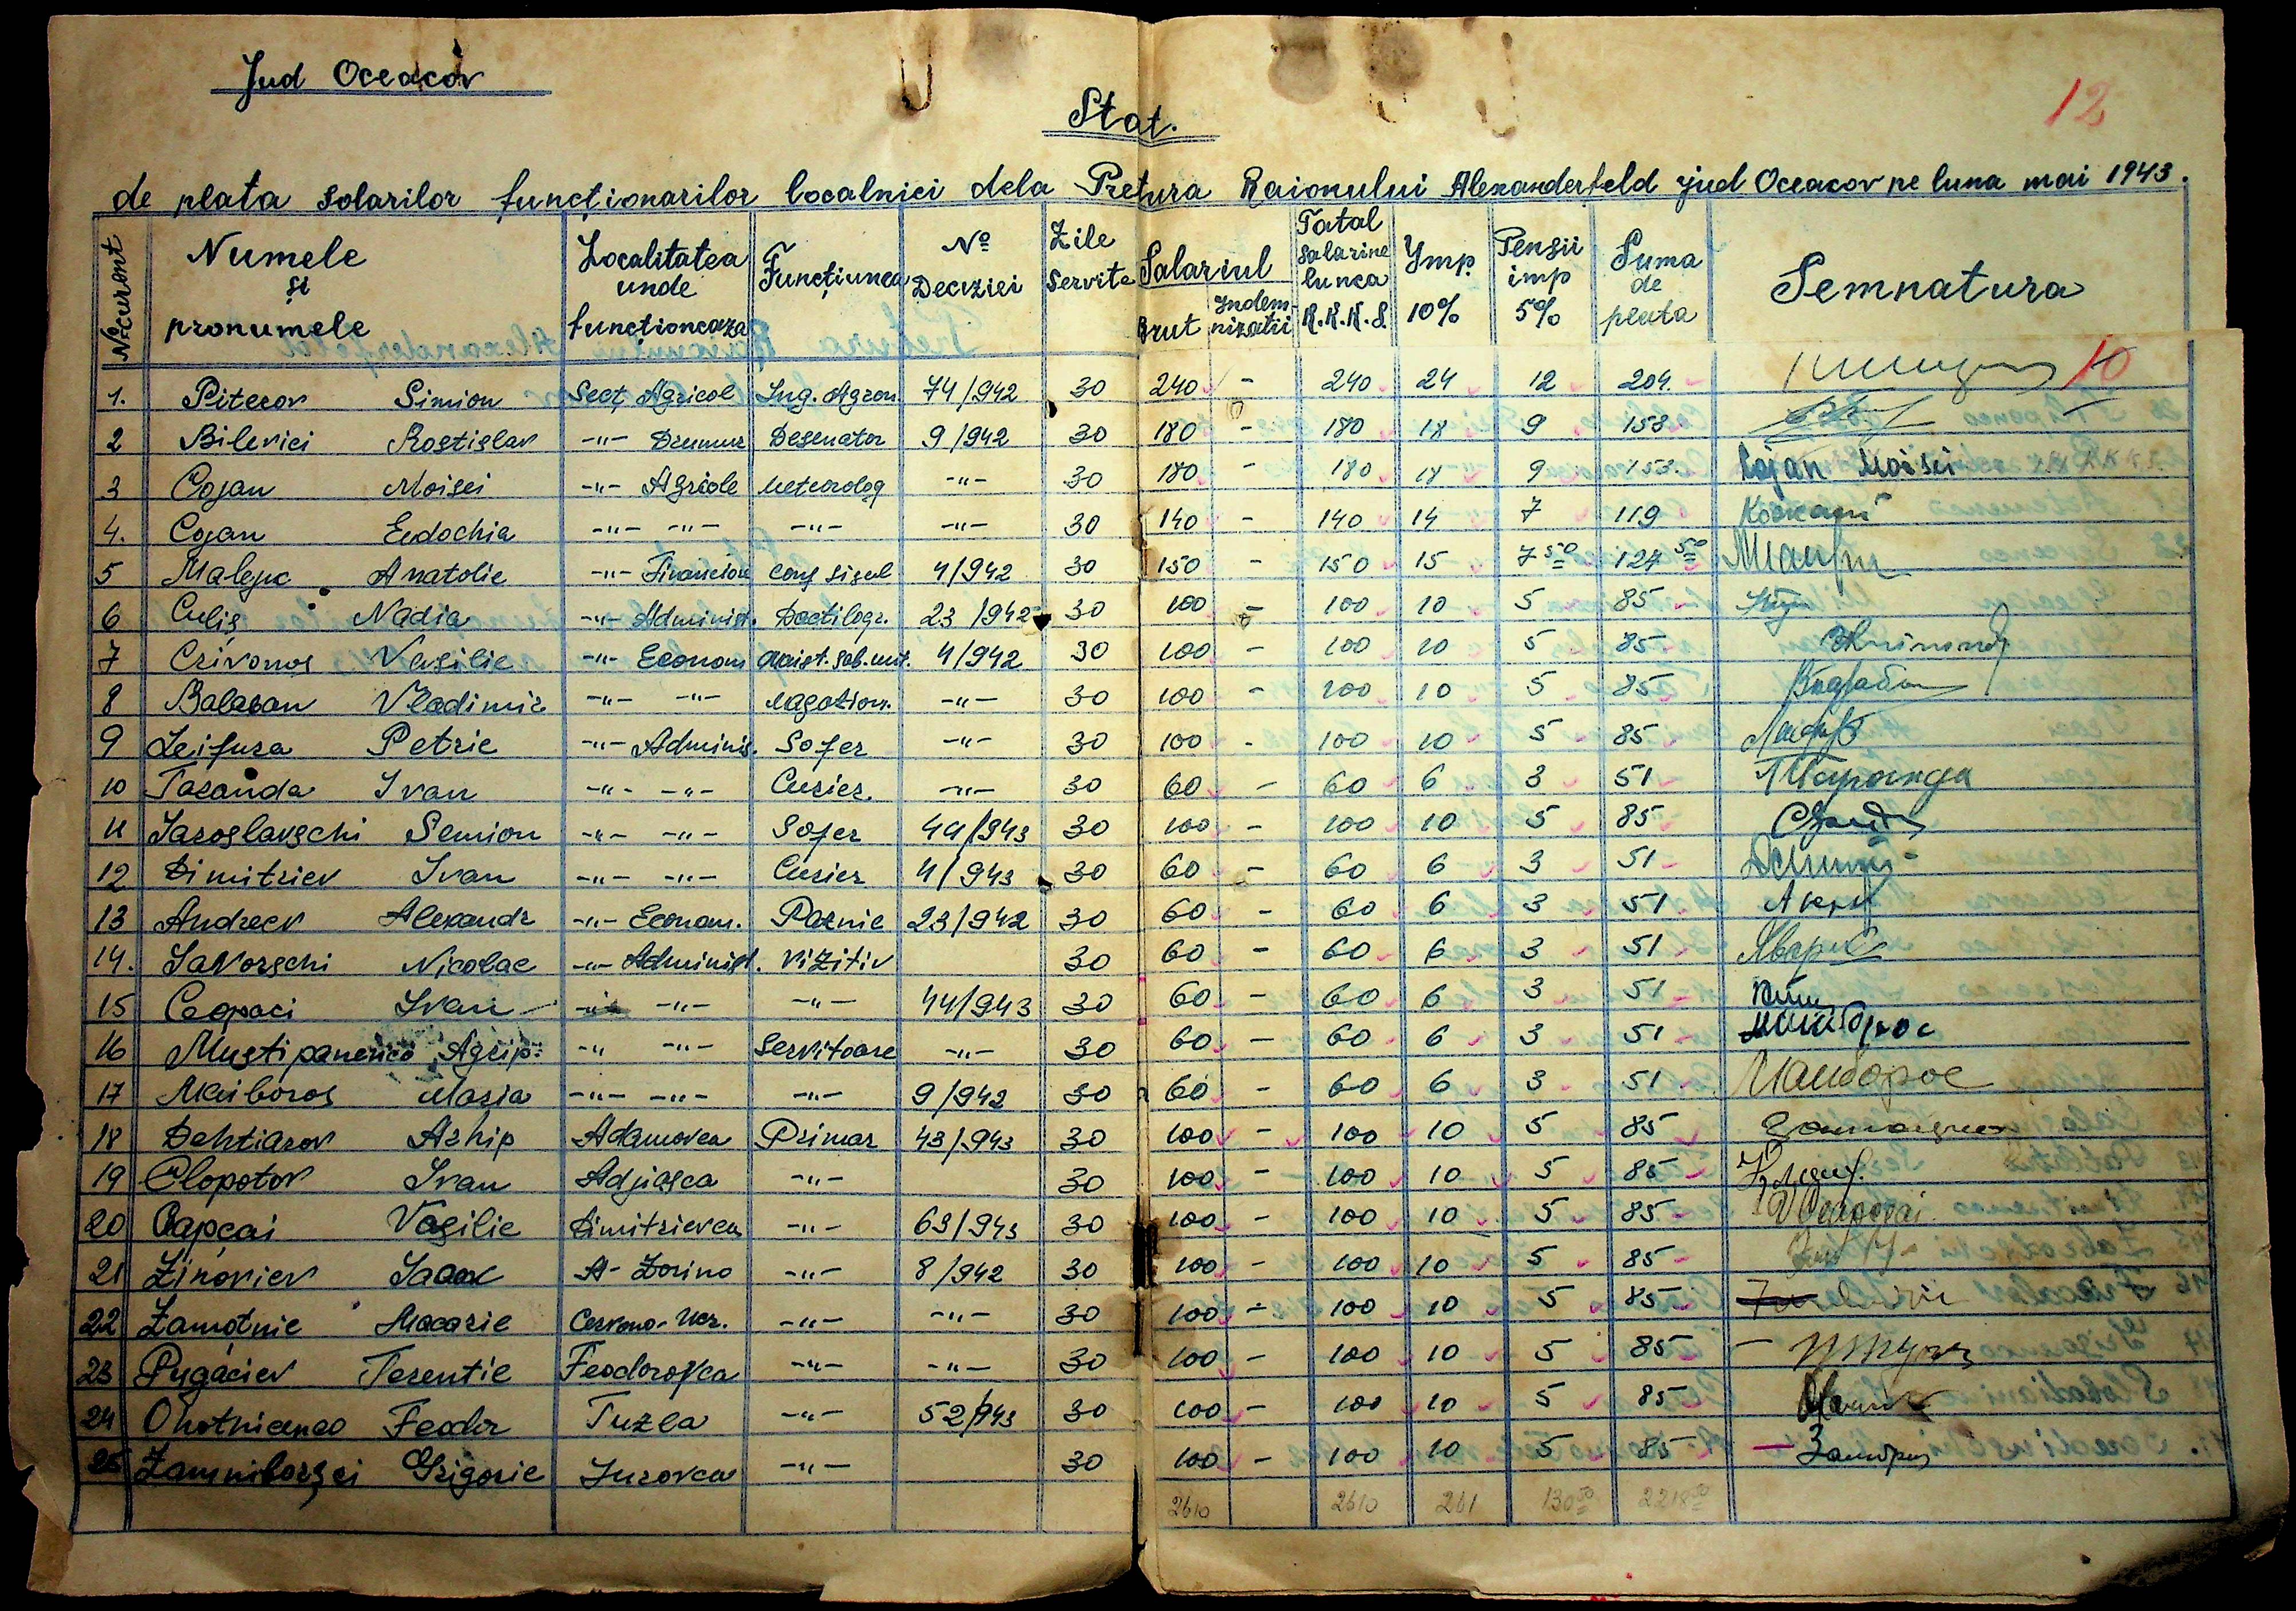 Jud Oceacov
12
Stat.
de plata Solarilor funcționarilor localnici dela Pretura Raionului Alexanderfeld jud Oceacov pe luna mai 1943.
No curent Numele și pronumele Localitatea unde funcționeaza Funcțiunea No Deciziei Zile Servite Salariul Brut Indemnizatii Tatal Salarine lunca R.K.K.S. Imp. 10% Pensii imp 5% Suma de plata Semnatura
10
1. Piterov Simion Secț Agricol Ing. Agron. 74/942 30 240 - 240 24 12 204.
2 Bilevici Rostislav -"- Drumur Desenator 9/942 30 180 - 180 18 9 153
3 Cojan Moisei -"- Agricole Meteorolog -"- 30 180 - 180 18 9 153. Cojan Moisei
4. Cojan Eudochia -"- -"- -"- -"- 30 140 - 140 14 7 119
5 Malejic Anatolie -"- Financiare 4/942 30 150 - 150 15 7 50 127 50
6 Culiș Nadia -"- Administ. Dactilogr. 23/942 30 100 - 100 10 5 85
7 Crivonos Vasilie -"- Econom 4/942 30 100 - 100 10 5 85
8 Balaban Vladimir -"- -"- Magazion. -"- 30 100 - 100 10 5 85
9 Leifura Petrie -"- Adminis. Sofer -"- 30 100 - 100 10 5 85
10 Taranda Ivan -"- -"- Curier -"- 30 60 - 60 6 3 51 Таранда
11 Iaroslavschi Semion -"- -"- Sofer 44/943 30 100 - 100 10 5 85
12 Dimitriev Ivan -"- -"- Curier 4/943 30 60 - 60 6 3 51
13 Andreev Alexandr -"- Econom. Paznic 23/942 30 60 - 60 6 3 51
14. Iavorschi Nicolae -"- Administ. Vizitiv 30 60 - 60 6 3 51
15 Copaci Ivan -"- -"- -"- 44/943 30 60 - 60 6 3 51
16 Mustipanenco Agrip. -"- -"- Servitoare -"- 30 60 - 60 6 3 51
17 Maiboros Maria -"- -"- -"- 9/942 30 60 - 60 6 3 51 Майборос
18 Dehtiarov Arhip Adamovca Primar 43/943 30 100 - 100 10 5 85
19 Clopotov Ivan Adjiasca -"- 30 100 - 100 10 5 85
20 Capcai Vasilie Dimitrievca -"- 63/943 30 100 - 100 10 5 85
21 Zinoviev Isaac A-Zorino -"- 8/942 30 100 - 100 10 5 85
22 Zamotnic Macarie Cervono-Ucr. -"- -"- 30 100 - 100 10 5 85
23 Pugaciev Terentie Feodorofca -"- -"- 30 100 - 100 10 5 85
24 Ohotnicenco Feodor Tuzla -"- 52/943 30 100 - 100 10 5 85
25 Zamniborșci Grigorie Jurovca -"- 30 100 - 100 10 5 85
2610 2610 261 130 50 2218 50